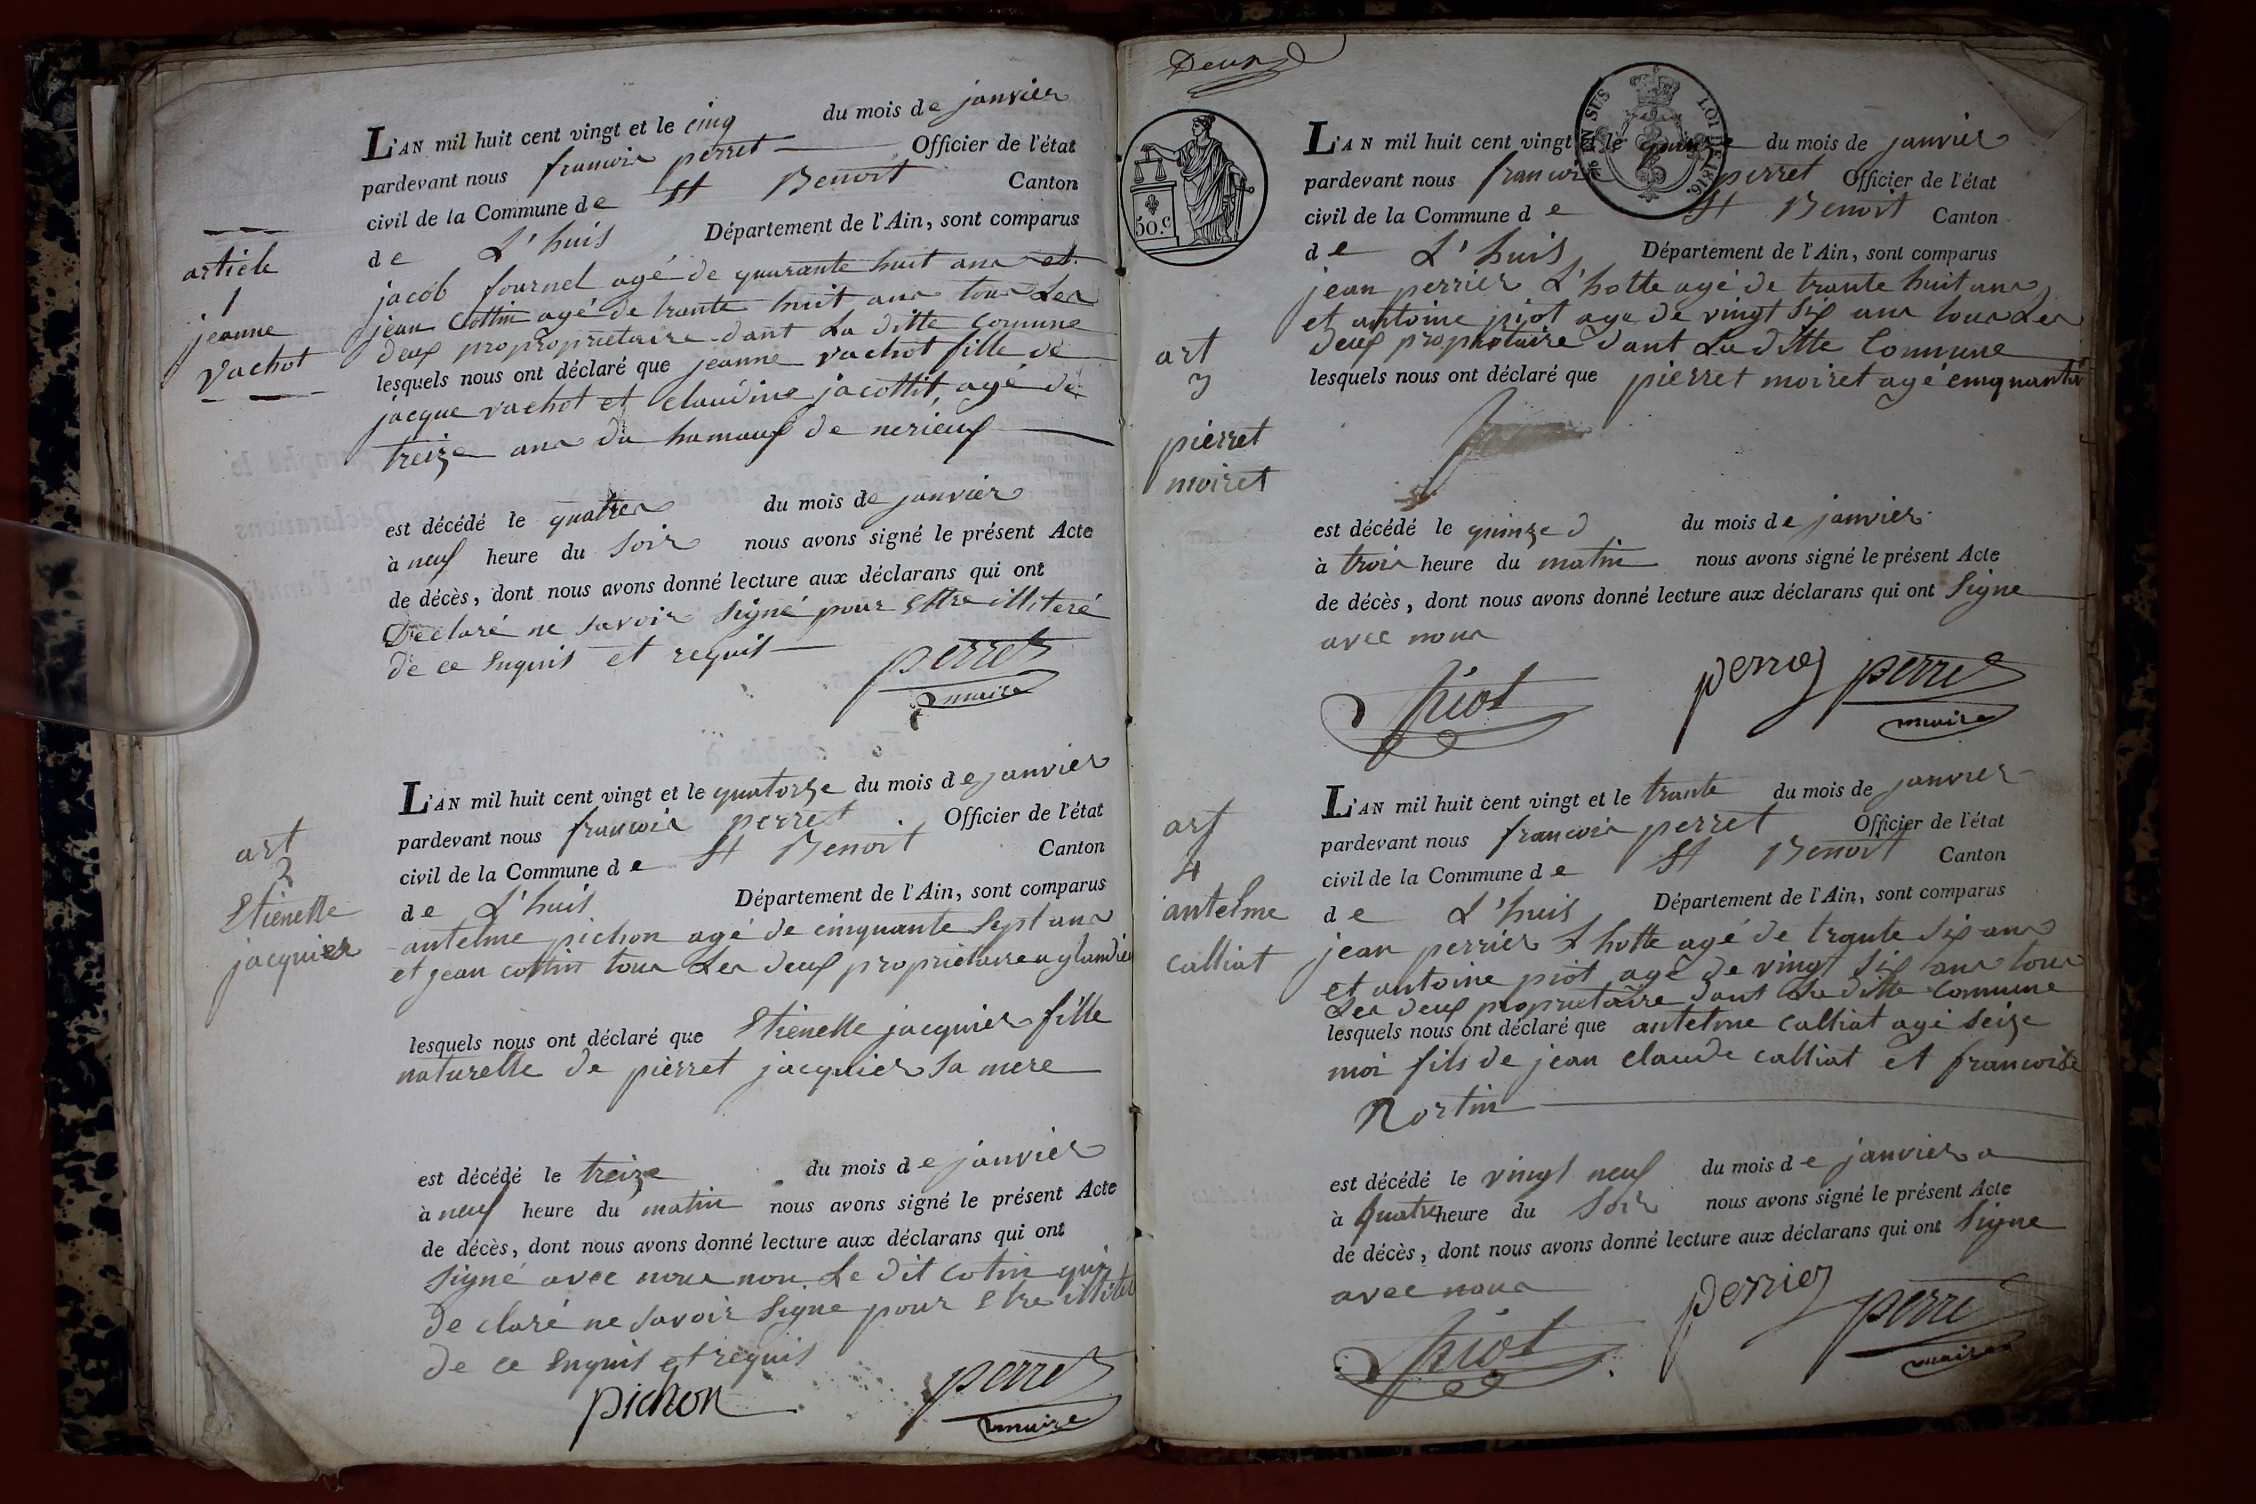 article
1
jeanne
vachot
L'AN mil huit cent vingt et le cinq du mois de janvier
pardevant nous francois perret Officier de l'état
civil de la Commune de St Benoit Canton
de L'huis Département de l'Ain, sont comparus
jacob fournel agé de quarante huit ans et
jean Cottin agé de trante huit ans tous Les
deux propropriétaire dant La ditte Comune
lesquels nous ont déclaré que jeanne vachot fille de
jacque vachot et claudine jacottit, agé de
treize ans du hamaux de nerieux
est décédé le quatres du mois de janvier
à neuf heure du soir nous avons signé le présent Acte
de décès, dont nous avons donné lecture aux déclarans qui ont
Declaré ne savoir signé pour Ettre illiteré
de ce Enquis et requis
perret
maire
art
2
Etienette
jacquier
L'AN mil huit cent vingt et le quatorze du mois de janvier
pardevant nous francois perret Officier de l'état
civil de la Commune de St Benoit Canton
de L'huis Département de l'Ain, sont comparus
antelme pichon agé de cinquante Sept ans
et jean cottin tous Les deux proprietaire a glandieu
lesquels nous ont déclaré que Etienette jacquier fille
naturelle de pierret jacquier sa mere
est décédé le treize du mois de janvier
à neuf heure du matin nous avons signé le présent Acte
de décès, dont nous avons donné lecture aux déclarans qui ont
signé avec nous non Le dit cotin qui
de claré ne savoir Signe pour Etre
de ce Enquis et requis
pichon
perret
maire
Deux
50.c
EN SUS
LOI DE 1816
L'AN mil huit cent vingt et le quinze du mois de janvier
pardevant nous francois perret Officier de l'état
civil de la Commune de St Benoit Canton
de L'huis Département de l'Ain, sont comparus
jean perrier L'hotte agé de trante huit ans
et antoine piot age de vingt Six ans tous Les
deux propriétaire dant La ditte Commune
art
3
pierret
moiret
lesquels nous ont déclaré que pierret moiret agé cinquante
est décédé le quinze du mois de janvier
à trois heure du matin nous avons signé le présent Acte
de décès, dont nous avons donné lecture aux déclarans qui ont Signe
avec nous
piot
perrier
perret
maire
art
4
antelme
calliat
L'AN mil huit cent vingt et le trante du mois de janvier
pardevant nous francois perret Officier de l'état
civil de la Commune de St Benoit Canton
de L'huis Département de l'Ain, sont comparus
jean perrier L hotte agé de trante Six ans
et antoine piot agé de vingt Six ans tous
Les deux proprietaire dant La ditte Commune
lesquels nous ont déclaré que antelme calliat agé seize
moi fils de jean claude calliat et francoise
Nortin
est décédé le vingt neuf du mois de janvier a
à quatre heure du Soir nous avons signé le présent Acte
de décès, dont nous avons donné lecture aux déclarans qui ont Signe
avec nous
piot
perrier
perret
maire